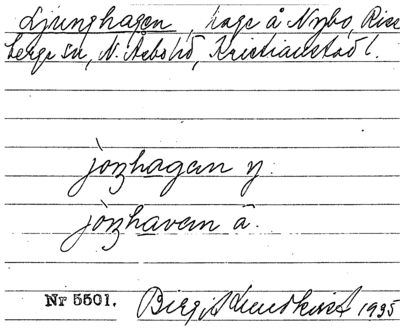 Ljunghagen, hage å Nybo, Rise
berga sn, N. Åsbo hd, Kristianstad l.
jòŋhagan y.
jòŋhavan ä.
Nr 5501. Birgit Lundkvist 1935